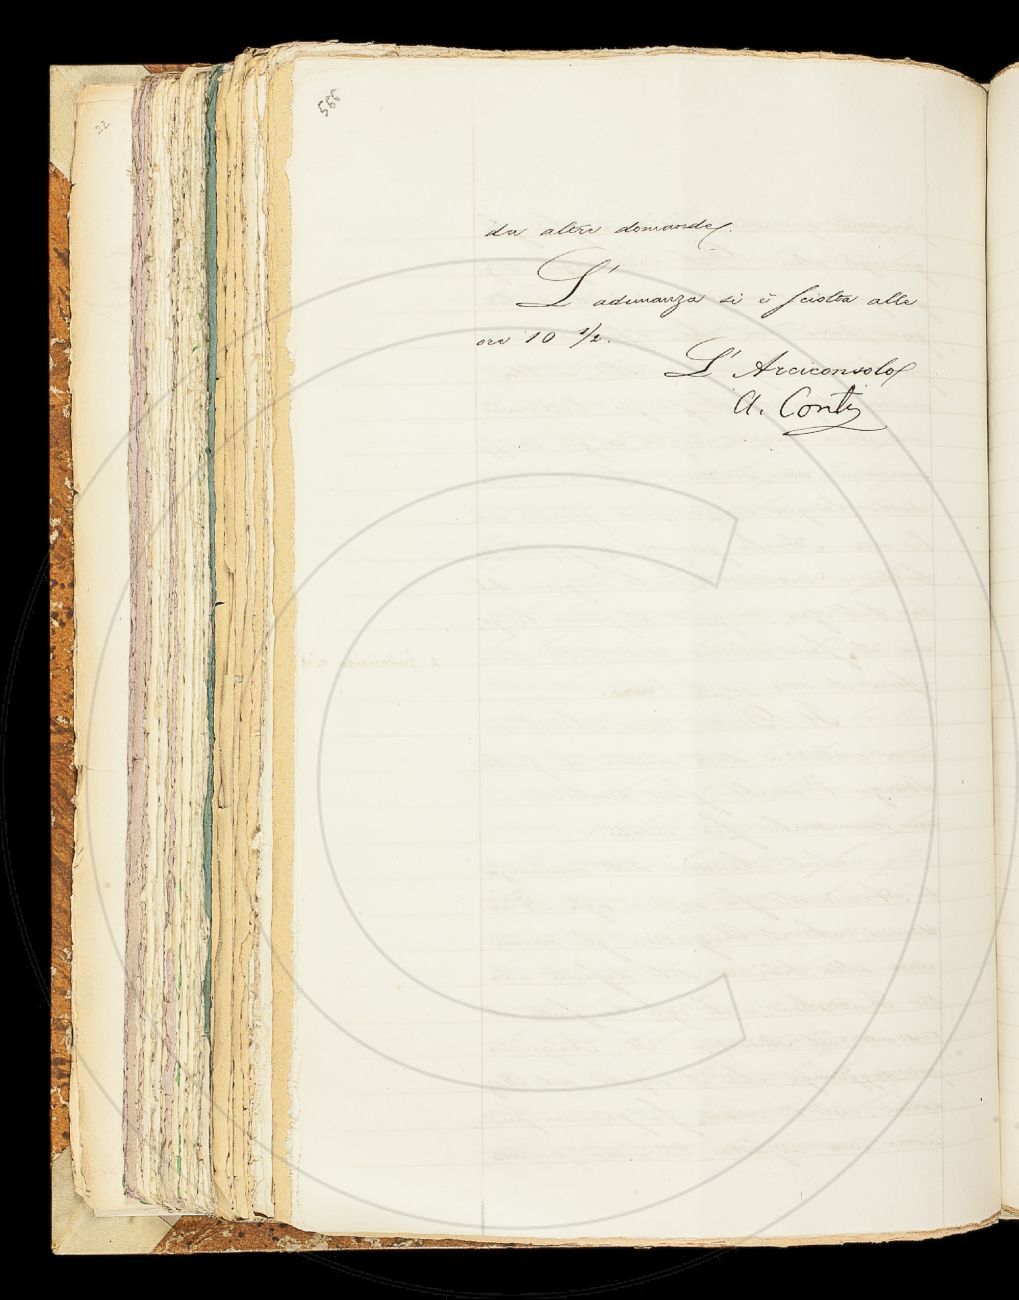 22
566
da altre domande.
L'adunanza si è sciolta alle
ore 10 1/2.
L'Arciconsolo
A. Conti